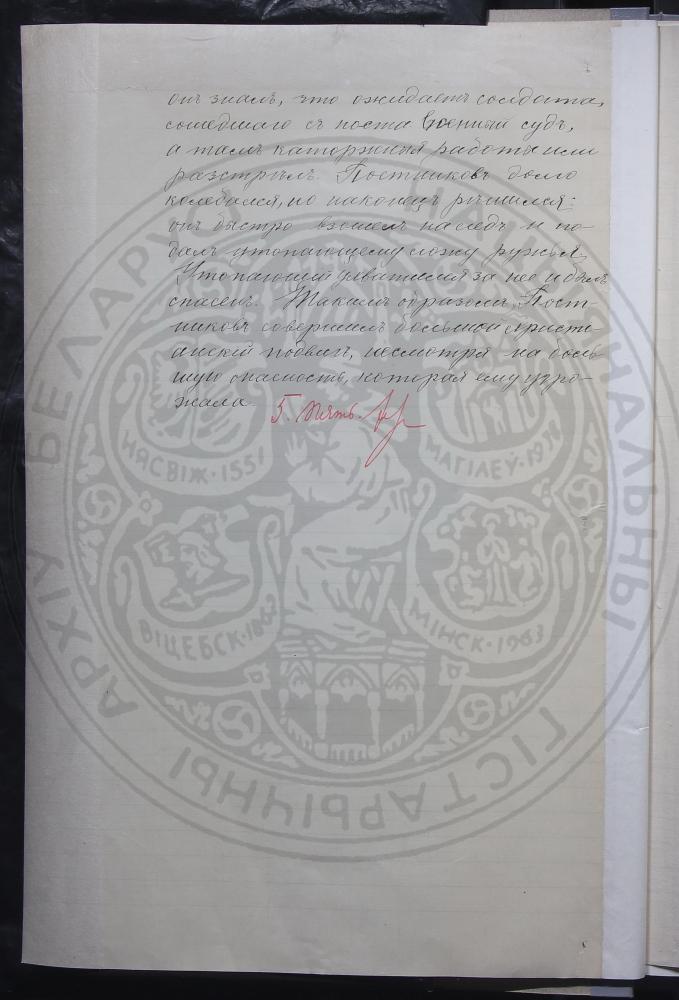 онъ зналъ, что ожидаетъ солдата,
сошедшаго съ поста военный судъ,
а тамъ каторжныя работы или
разстрѣлъ. Постниковъ долго
колебался, но наконецъ рѣшился:
онъ быстро взошелъ на ледъ и по-
далъ утопающему ложу ружья.
Утопающій ухватился за нее и былъ
спасенъ. Такимъ образомъ, Пост-
никовъ совершилъ большой христі-
анскій подвигъ, несмотря на боль-
шую опасность, которая ему угро-
жала
5. пять.
НЯСВІЖ · 1551
МАГІЛЕЎ · 19
ВІЦЕБСК · 18
МІНСК · 1993
НАЦЫЯНАЛЬНЫ
ГІСТАРЫЧНЫ
АРХІЎ БЕЛАРУСІ